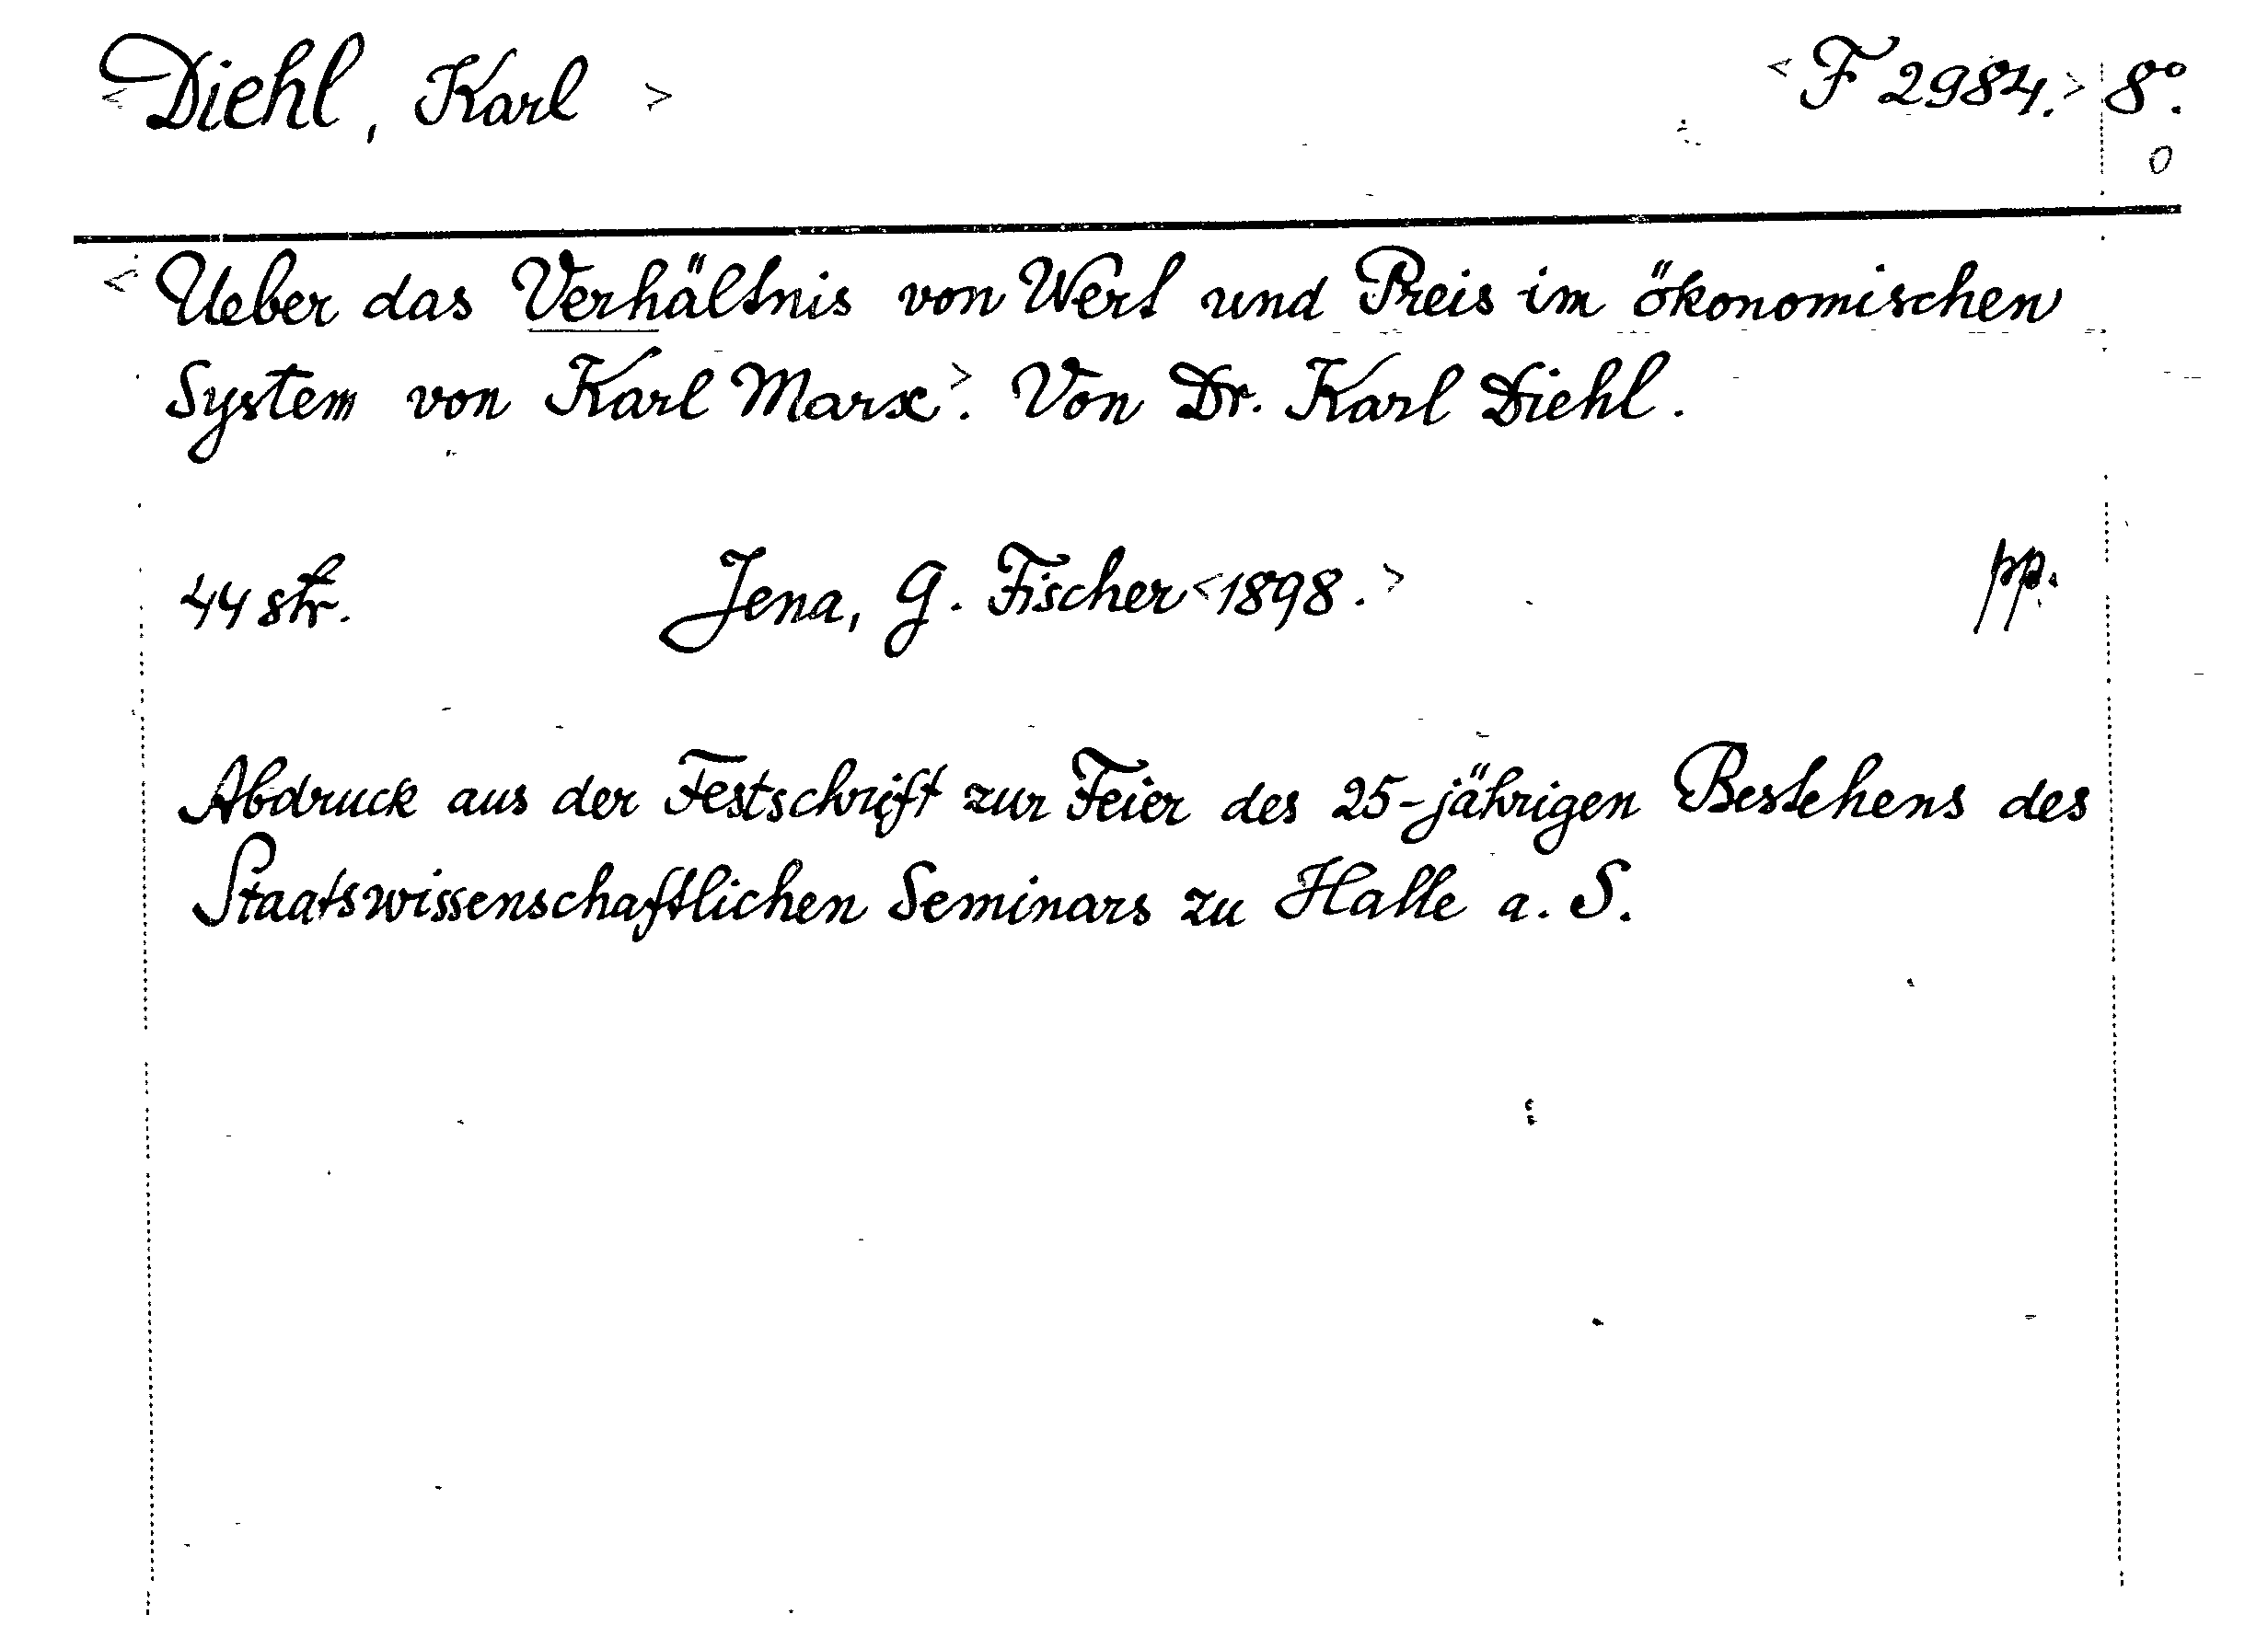 <Diehl, Karl> <F 2984.> 8°.
0
<Ueber das Verhältnis von Wert und Preis im ökonomischen
System von Karl Marx>. Von Dr. Karl Diehl.
44 str. Jena, G. Fischer <1898.> pp.
Abdruck aus der Festschrift zur Feier des 25-jährigen Bestehens des
Staatswissenschaftlichen Seminars zu Halle a. S.